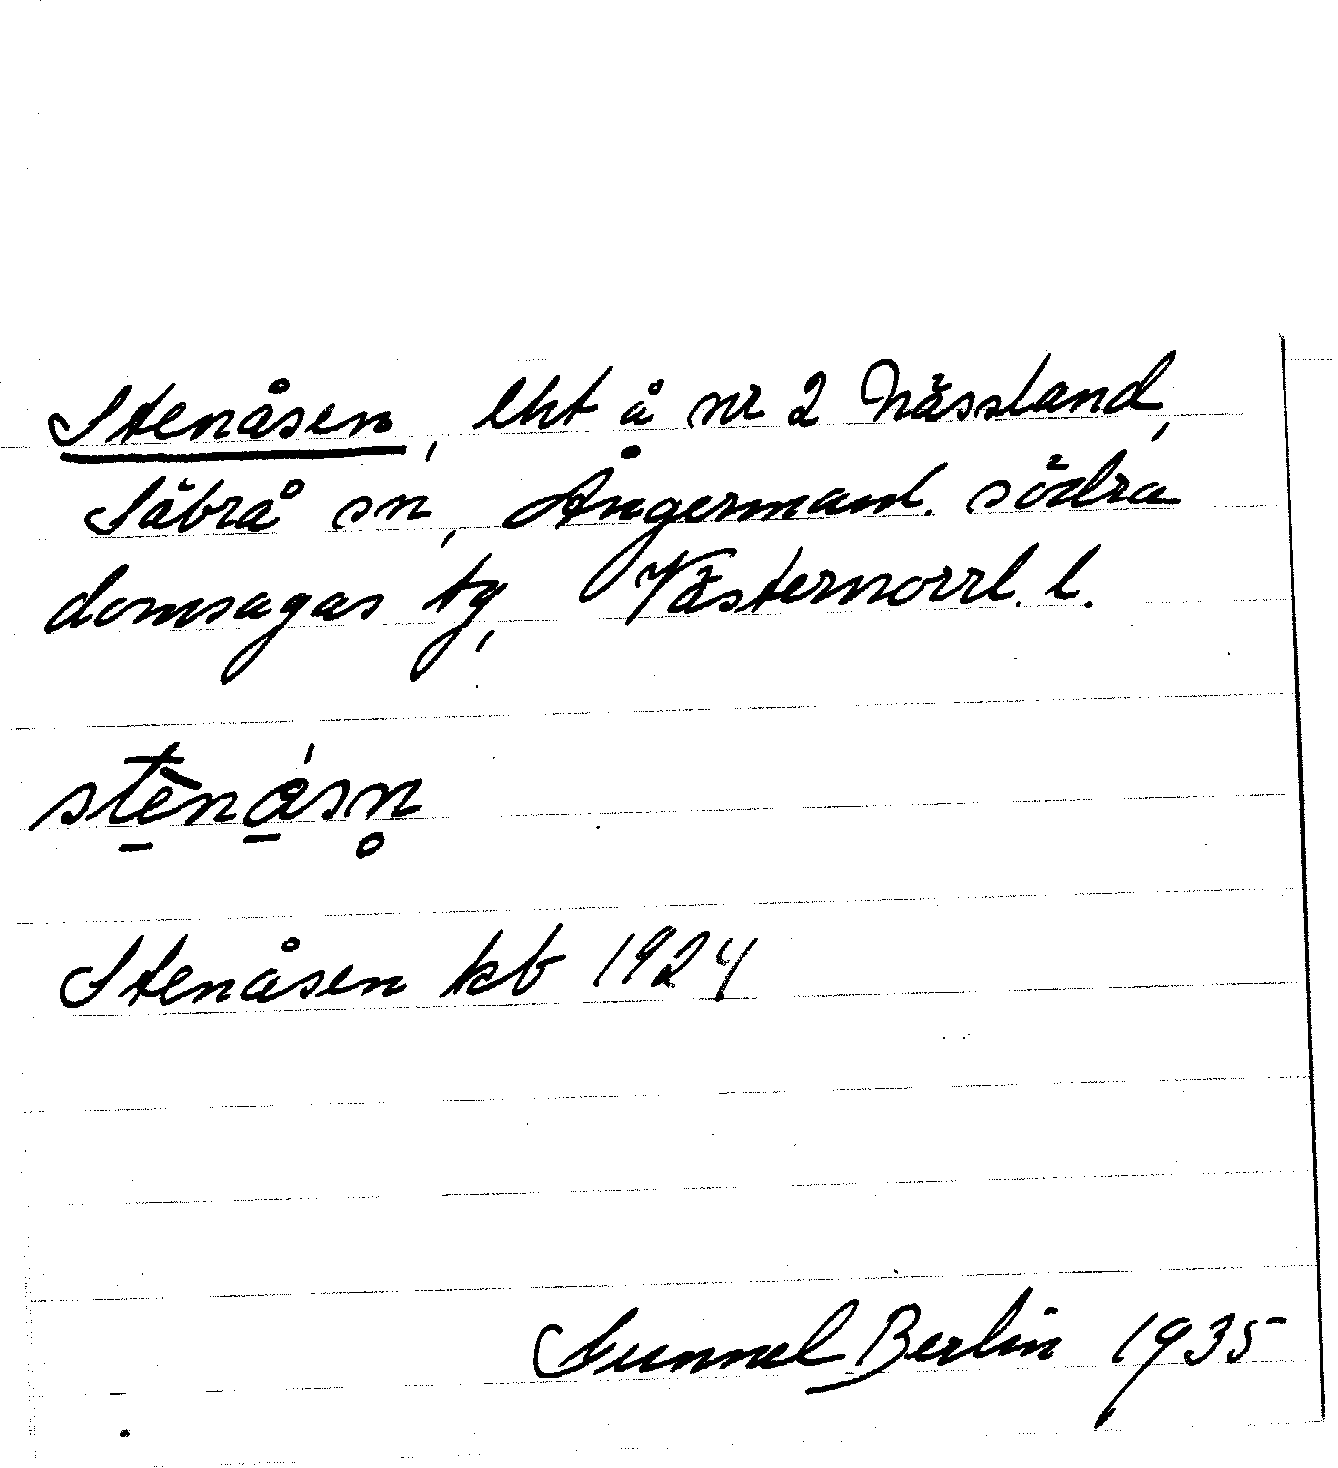 Stenåsen, lht å nr 2 Nässland,
Säbrå sn, Ångermanl. södra
domsagas tg, Västernorrl. l.
stè̠nǻ̠sn̥
Stenåsen kb 1924
Gunnel Berlin 1935